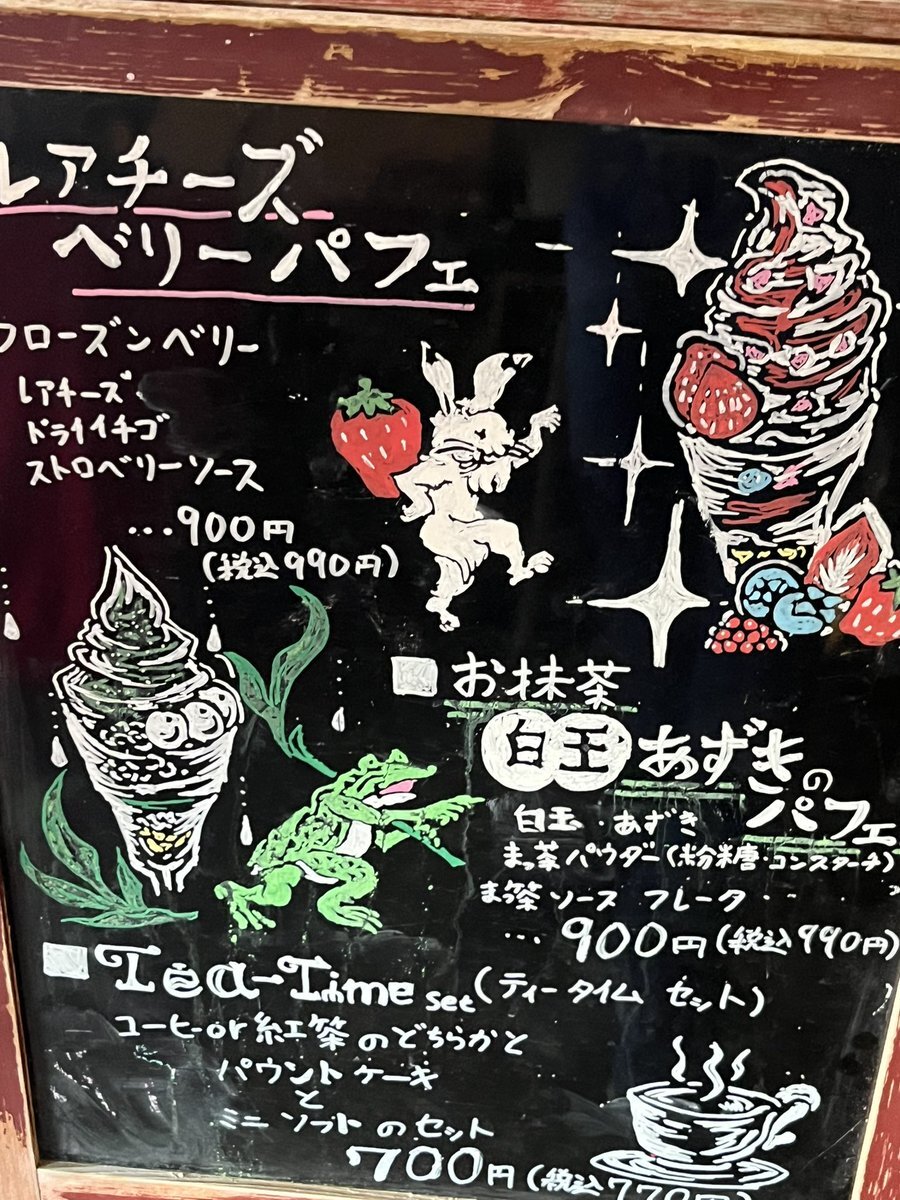 レアチーズ
ベリーパフェ
フローズンベリー
レアチーズ
ドライイチゴ
ストロベリーソース
…900円
(税込990円)
お抹茶
白玉あずきの
パフェ
白玉・あずき
まっ茶パウダー(粉糖・コンスターチ)
まっ茶ソース フレーク‥
…900円(税込990円)
Tea-Time set(ティータイム セット)
コーヒーor紅茶のどちらかと
パウントケーキ
と
ミニソフトのセット
700円(税込770円)